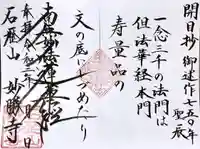 開目抄 御述作七五〇年
聖辰
一念三千の法門は
但法華経本門
寿量品の
文の底にしづめたり
南無妙法蓮華経
令和三年 月 日
石飛山 妙勝寺